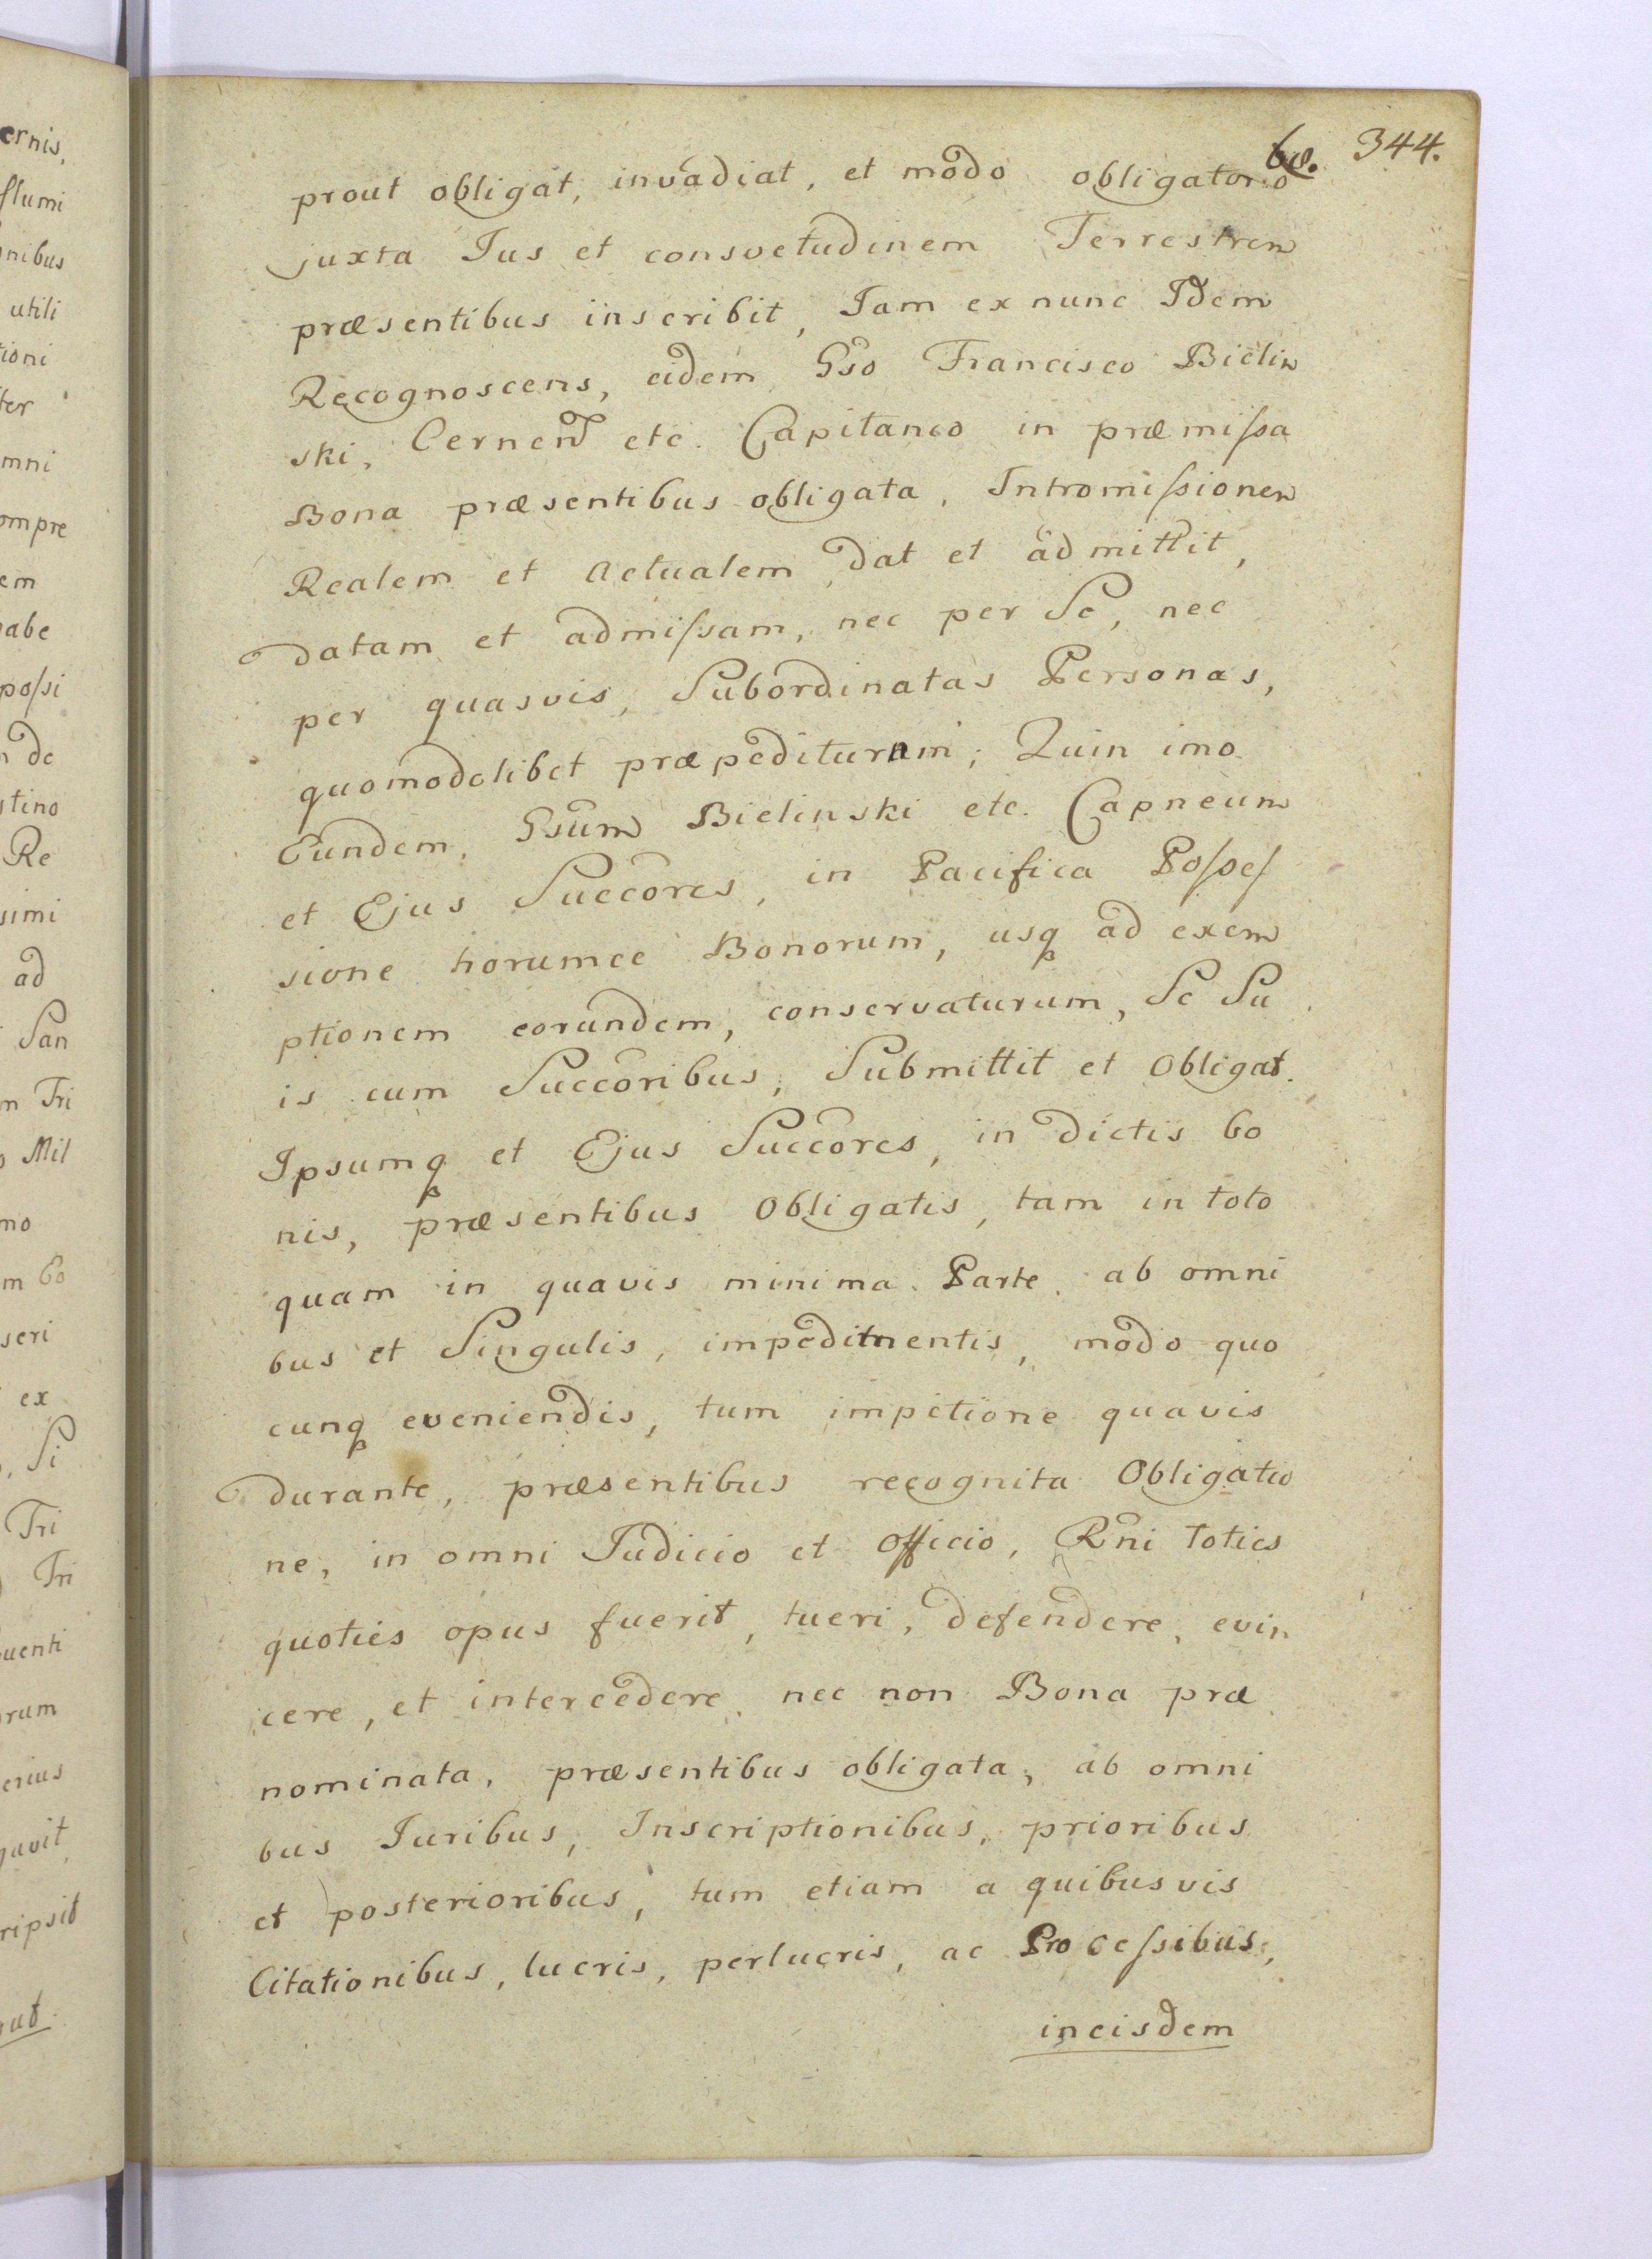 344.
prout obligat, invadiat, et modo obligatorio
juxta Jus et consvetudinem Terrestrem
præsentibus inscribit, Jam ex nunc Idem
Recognoscens, eidem Gso Francisco Bielin
ski, Cernen etc. Capitaneo in præmissa
Bona præsentibus obligata, Intromissionem
Realem et actualem dat et admittit,
datam et admissam, nec per Se, nec
per quasvis, Subordinatas Personas,
quomodolibet præpediturum; Quin imo
Eundem, Gsum Bielinski etc. Capneum
et Ejus Succores, in Pacifica Posses
sione horumce Bonorum, usq ad exem
ptionem eorundem, conservaturum, Se Su
is cum Succoribus, Submittit et obligat.
Ipsumq et Ejus Succores, in dictis bo
nis, præsentibus obligatis, tam in toto
quam in quavis minima Parte, ab omni
bus et Singulis, impedimentis, modo quo
cunq eveniendis, tum impetione quavis
durante, præsentibus recognita Obligatio
ne, in omni Judicio et officio, Rni toties
quoties opus fuerit, tueri, defendere, evin
cere, et intercedere, nec non Bona præ
nominata, præsentibus obligata, ab omni
bus Juribus, Inscriptionibus, prioribus
et posterioribus, tum etiam a quibusvis
Citationibus, lucris, perlucris, ac Processibus,
in eisdem
ernis,
nibus
utili
tioni
ter
omni
ompre
em
habe
possi
n de
stino
Re
simi
ad
San
m Tri
o Mil
mo
m bo
seri
ex
Si
Tri
Tri
uenti
orum
erius
gavit
ripsit